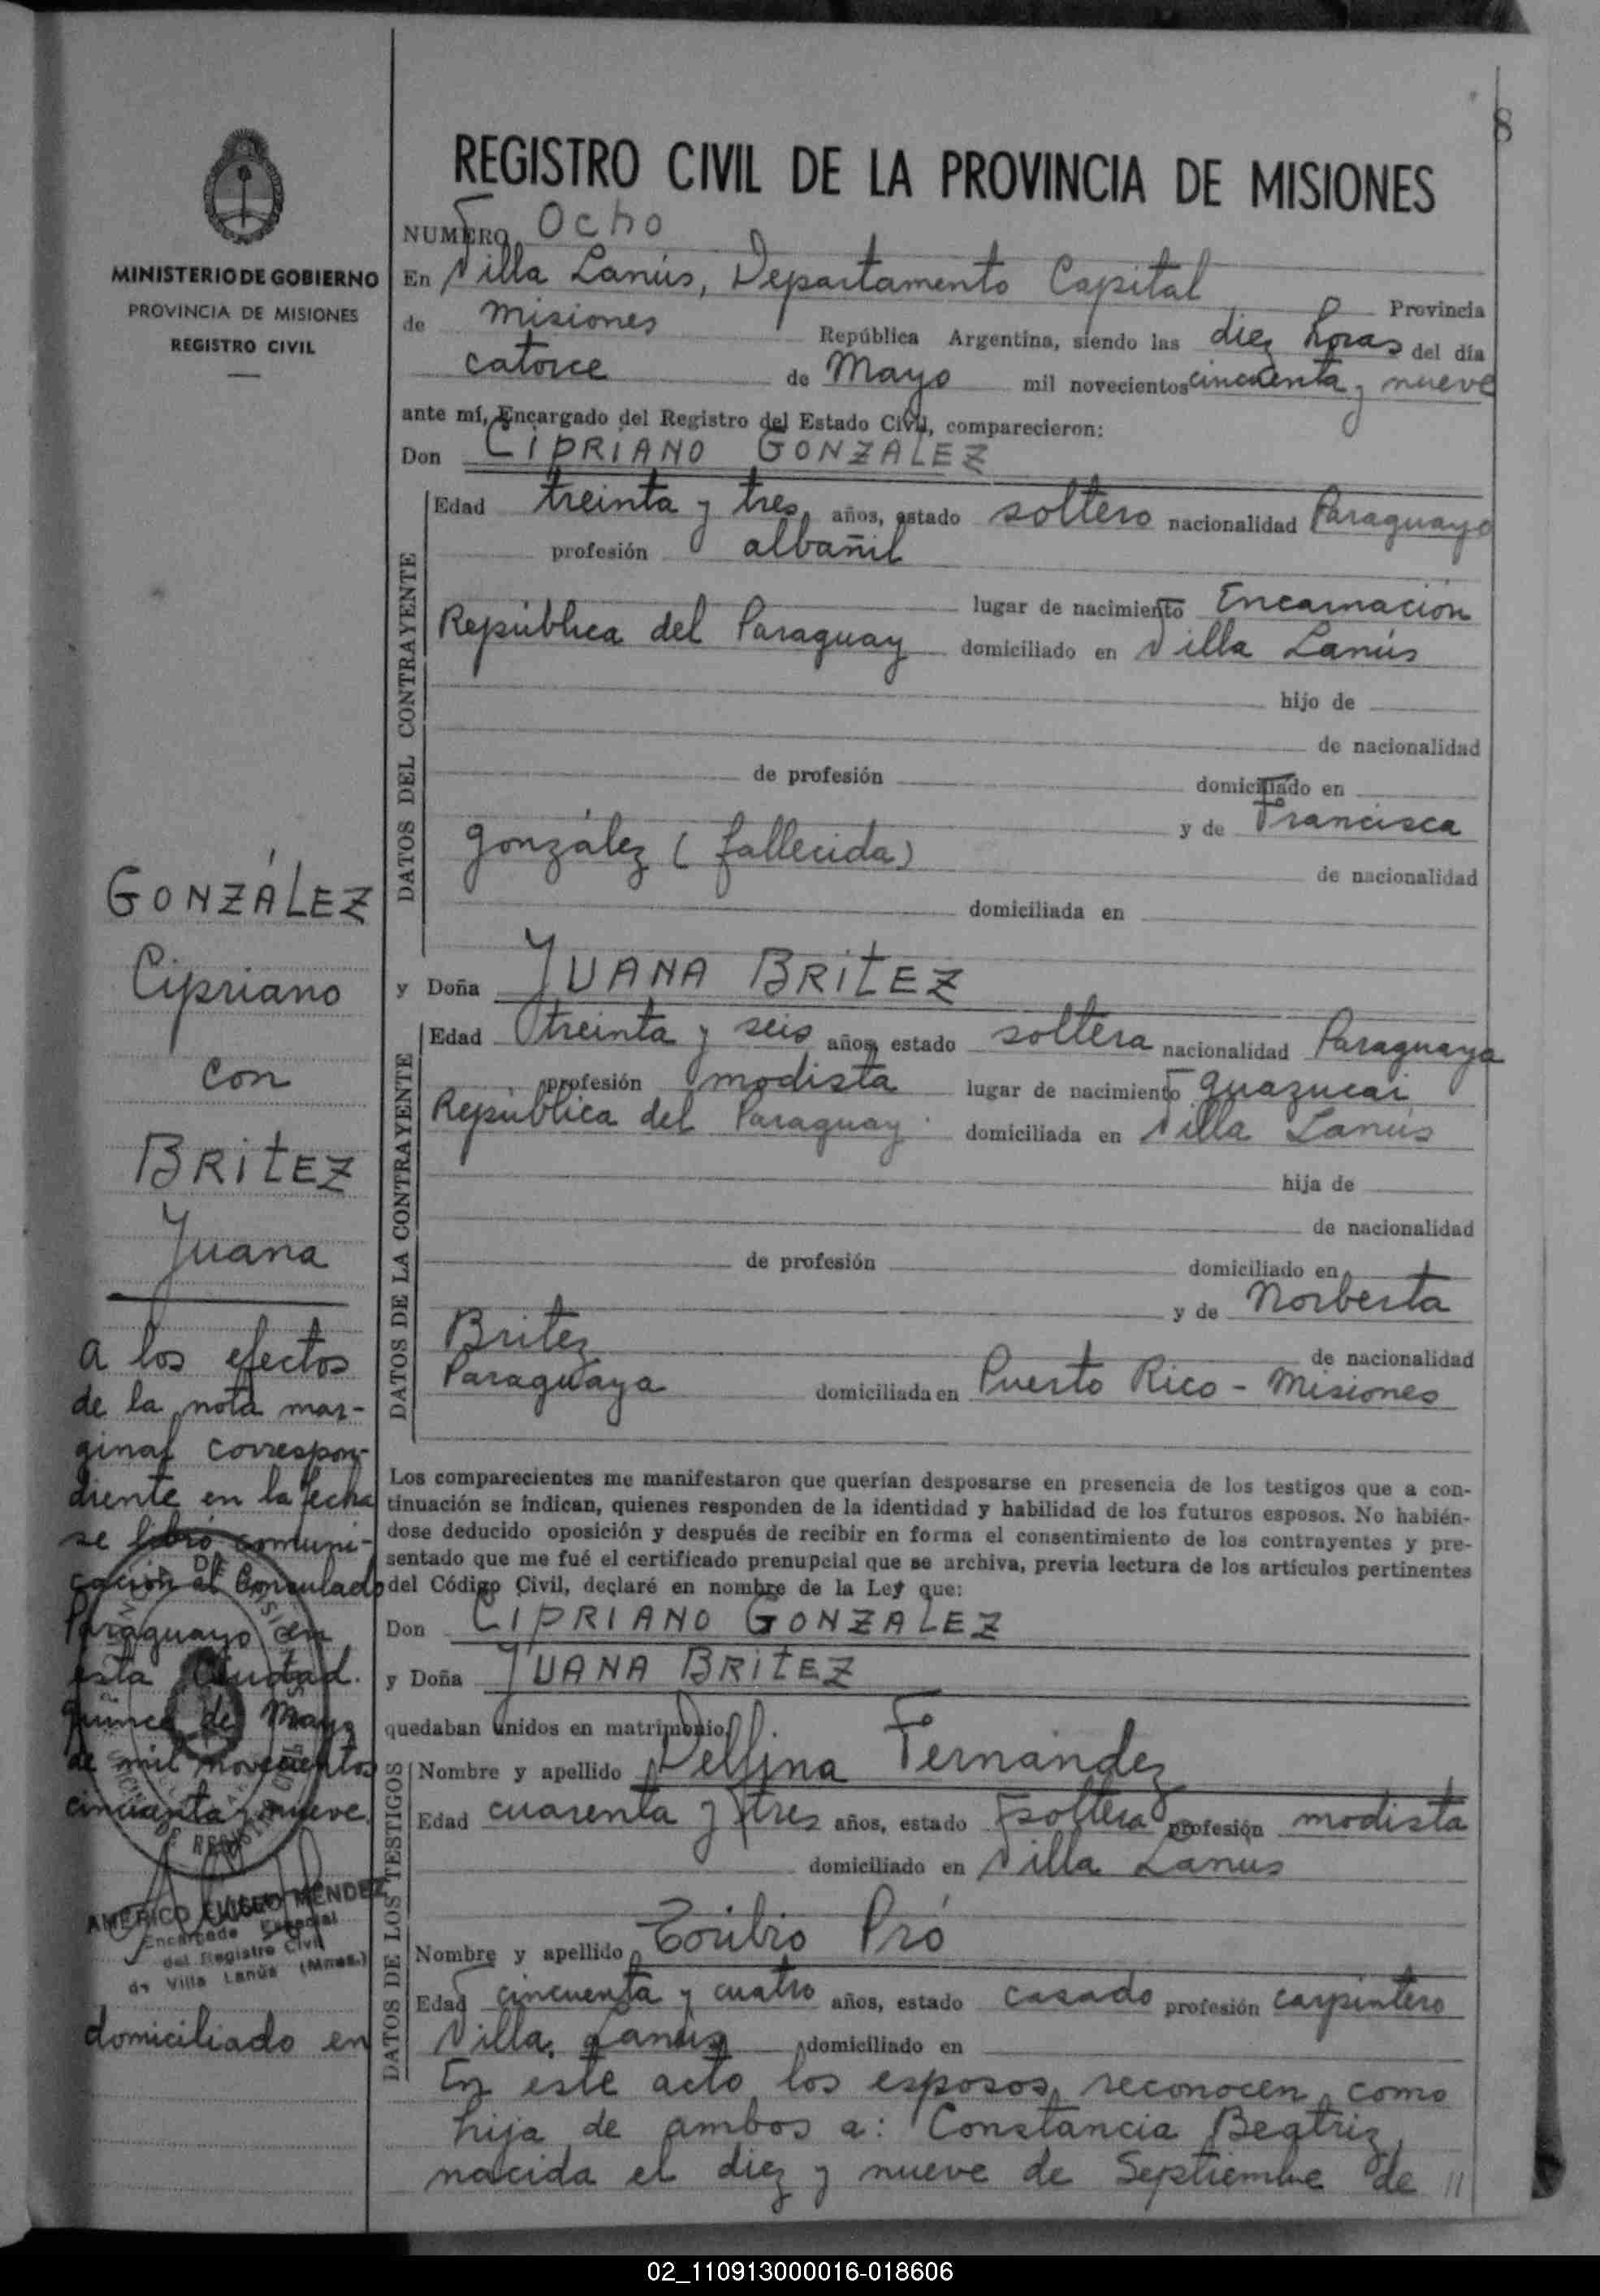 8
REGISTRO CIVIL DE LA PROVINCIA DE MISIONES
MINISTERIO DE GOBIERNO
PROVINCIA DE MISIONES
REGISTRO CIVIL
NUMERO Ocho
En Villa Lanús, Departamento Capital Provincia
de Misiones República Argentina, siendo las diez horas del día
catorce de Mayo mil novecientos cincuenta y nueve
ante mí, Encargado del Registro del Estado Civil, comparecieron:
Don CIPRIANO GONZALEZ
DATOS DEL CONTRAYENTE
Edad treinta y tres años, estado soltero nacionalidad Paraguayo
profesión albañil
lugar de nacimiento Encarnación
República del Paraguay domiciliado en Villa Lanús
hijo de
de nacionalidad
de profesión domiciliado en
y de Francisca
González (fallecida)
de nacionalidad
domiciliada en
y Doña JUANA BRITEZ
DATOS DE LA CONTRAYENTE
Edad treinta y seis años, estado soltera nacionalidad Paraguaya
profesión modista lugar de nacimiento Guazucai
República del Paraguay domiciliada en Villa Lanús
hija de
de nacionalidad
de profesión domiciliado en
y de Norberta
Britez
de nacionalidad
Paraguaya domiciliada en Puerto Rico - Misiones
Los comparecientes me manifestaron que querían desposarse en presencia de los testigos que a con-
tinuación se indican, quienes responden de la identidad y habilidad de los futuros esposos. No habién-
dose deducido oposición y después de recibir en forma el consentimiento de los contrayentes y pre-
sentado que me fué el certificado prenupcial que se archiva, previa lectura de los artículos pertinentes
del Código Civil, declaré en nombre de la Ley que:
Don CIPRIANO GONZALEZ
y Doña JUANA BRITEZ
quedaban unidos en matrimonio.
DATOS DE LOS TESTIGOS
Nombre y apellido Delfina Fernández
Edad cuarenta y tres años, estado soltera profesión modista
domiciliado en Villa Lanus
Nombre y apellido Toribio Pró
Edad cincuenta y cuatro años, estado casado profesión carpintero
Villa Lanús domiciliado en
En este acto los esposos reconocen como
hija de ambos a: Constancia Beatriz,
nacida el diez y nueve de Septiembre de //
GONZÁLEZ
Cipriano
con
BRITEZ
Juana
A los efectos
de la nota mar-
ginal correspon-
diente en la fecha
se libró comuni-
cación al Consulado
Paraguayo en
esta Ciudad.
quince de Mayo
de mil novecientos
cincuenta y nueve.
AMERICO ELISEO MENDEZ
Encargado Especial
del Registro Civil
de Villa Lanús (Mnes.)
domiciliado en
02_110913000016-018606